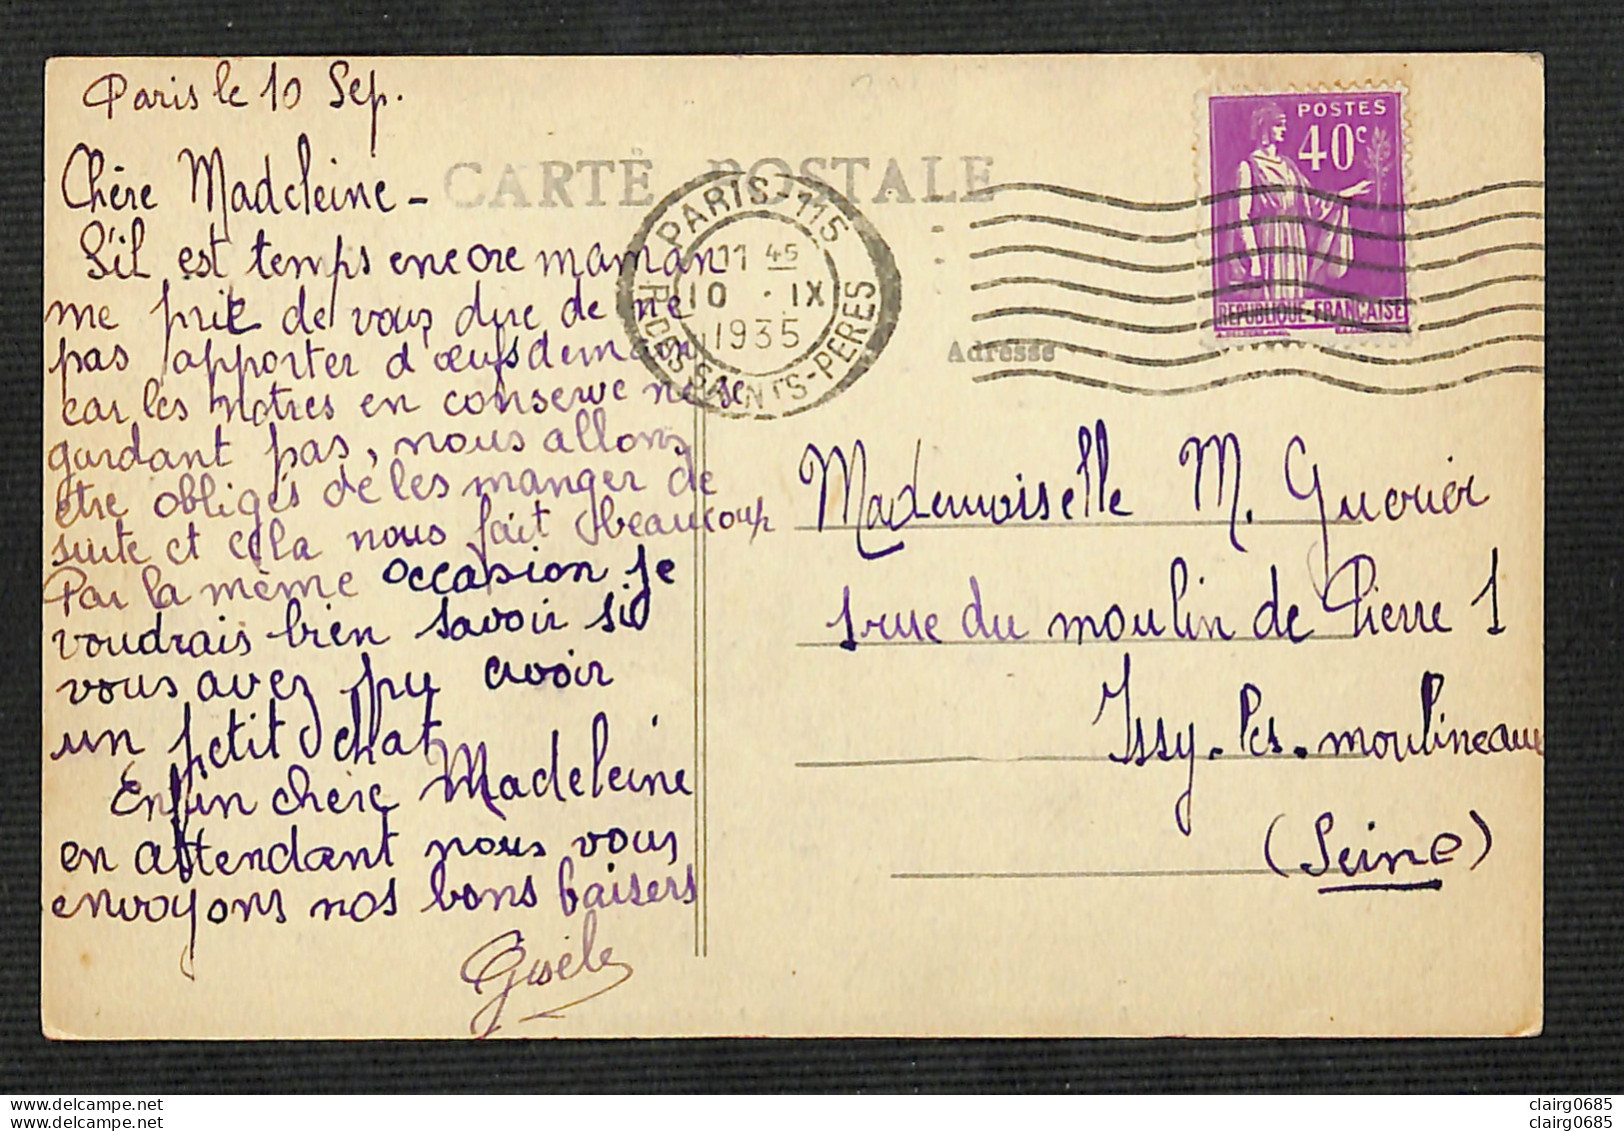 Paris le 10 Sep.
Chère Madeleine -
S'il est temps encore maman
me prie de vous dire de ne
pas apporter d'œufs demain
car les notres en conserve ne se
gardant pas, nous allons
être obligés de les manger de
suite et cela nous fait beaucoup
Par la même occasion je
voudrais bien savoir si
vous avez pu avoir
un petit chat
Enfin chère Madeleine
en attendant nous vous
envoyons nos bons baisers
Gisèle
CARTE POSTALE
PARIS-115
11 45
10 · IX
1935
R. DES SAINTS-PERES
POSTES
40c
REPUBLIQUE-FRANÇAISE
Adresse
Mademoiselle M. Guerier
1 rue du moulin de Pierre 1
Issy-les-moulineaux
(Seine)
clairg0685
clairg0685
clairg0685
clairg0685